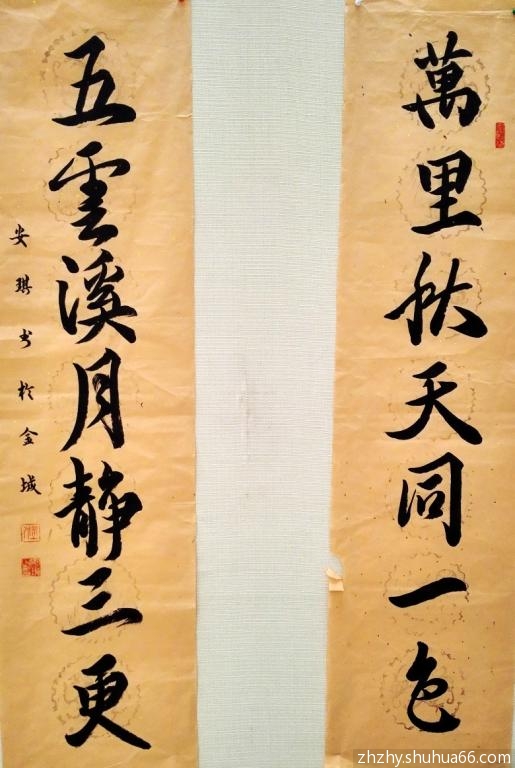 萬里秋天同一色
五雲溪月靜三更
安琪书於金城
zhzhy.shuhua66.com